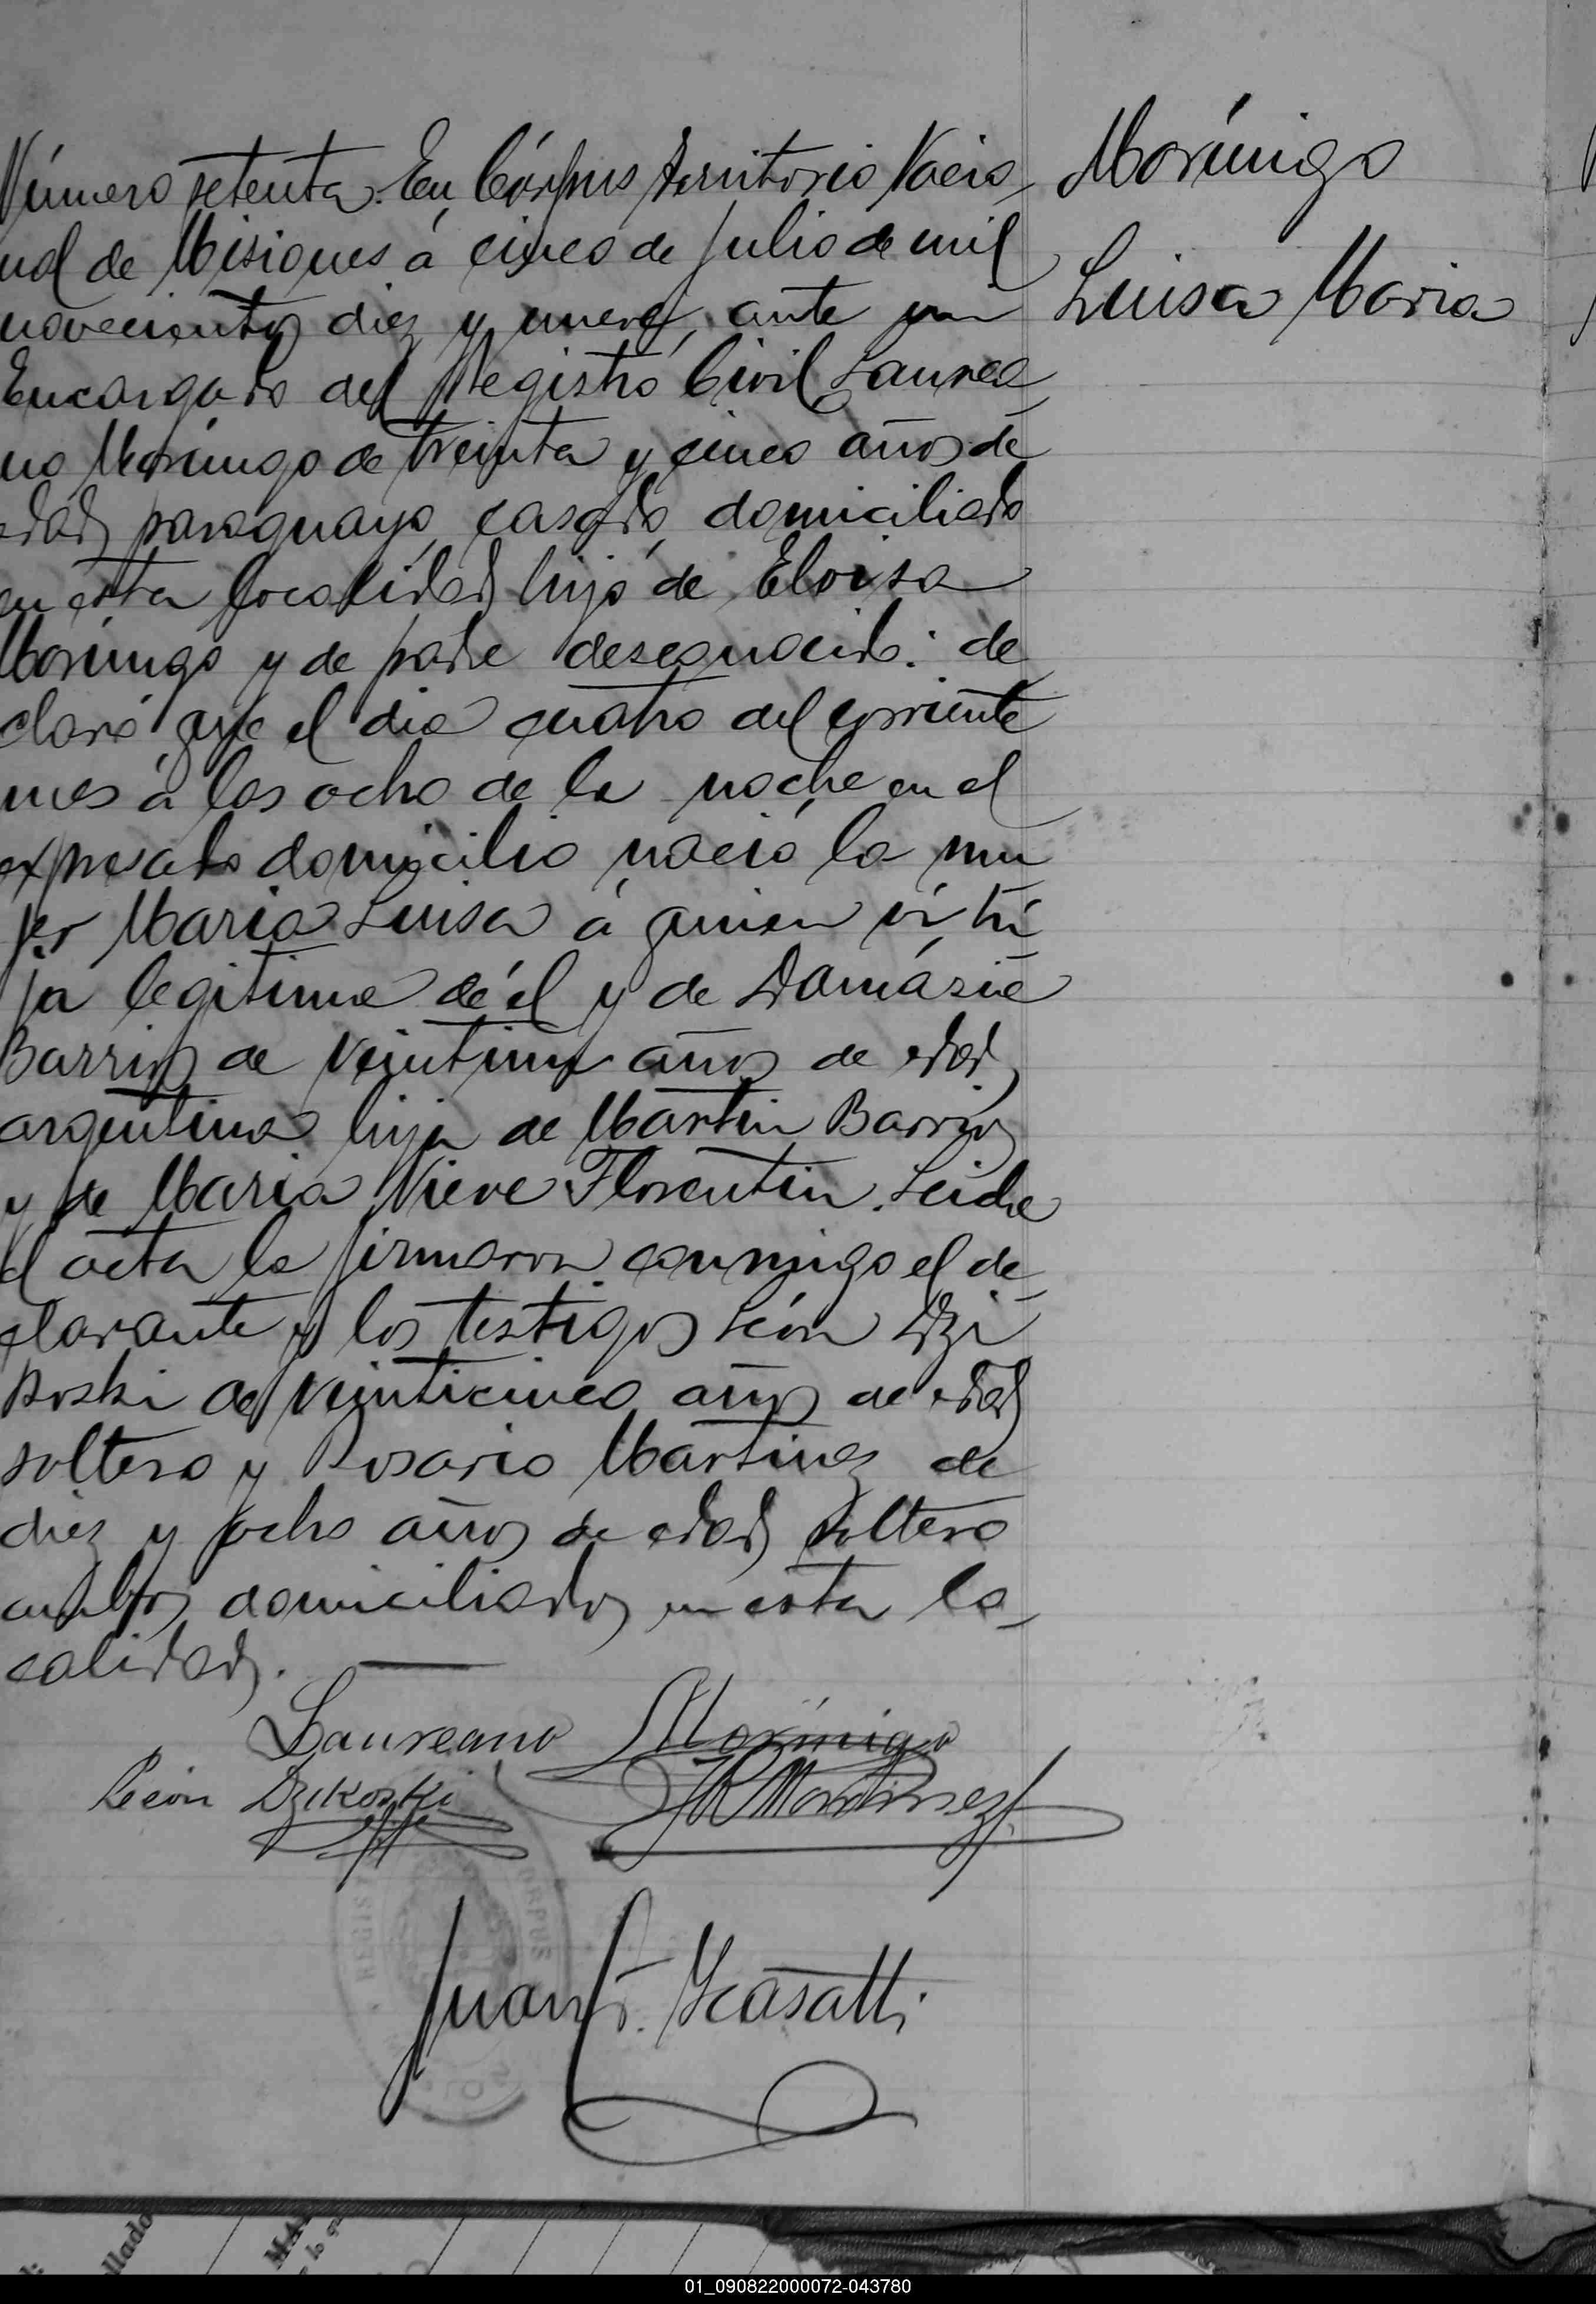 Número setenta. En Córpus Territorio Nacio
nal de Misiones á cinco de Julio de mil
novecientos diez y nueve, ante mi
Encargado del Registro Civil Laurea
no Morínigo de treinta y cinco años de
edad, paraguayo, casado, domiciliado
en esta localidad, hijo de Eloisa
Morínigo y de padre desconocido: de
claró que el dia cuatro del corriente
mes á las ocho de la noche en el
expresado domicilio nació la mu
jer Maria Luisa á quien ví, hi
ja legitima de él y de Damásia
Barrios de años de edad,
argentina hija de Martin Barrios
y de Maria Nieve Florentin. Leida
el acta la firmaron conmigo el de
clarante y los testigos León Dzi
koski de veinticinco años de edad
soltero y Rosario Martinez de
diez y ocho años de edad soltero
ambos domiciliados en esta lo
calidad.
Morínigo
Luisa Maria
Laureano Morínigo
León Dzikoski
JR Martinez
Juan F. Icasatti
REGIS
ORPUS
llado
01_090822000072-043780